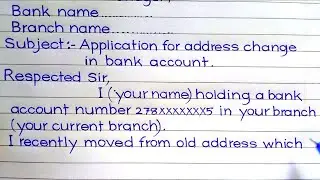 Bank name..............
Branch name..............
Subject:- Application for address change
in bank account.
Respected Sir,
I (your name) holding a bank
account number 278XXXXXXX5 in your branch
(your current branch).
I recently moved from old address which